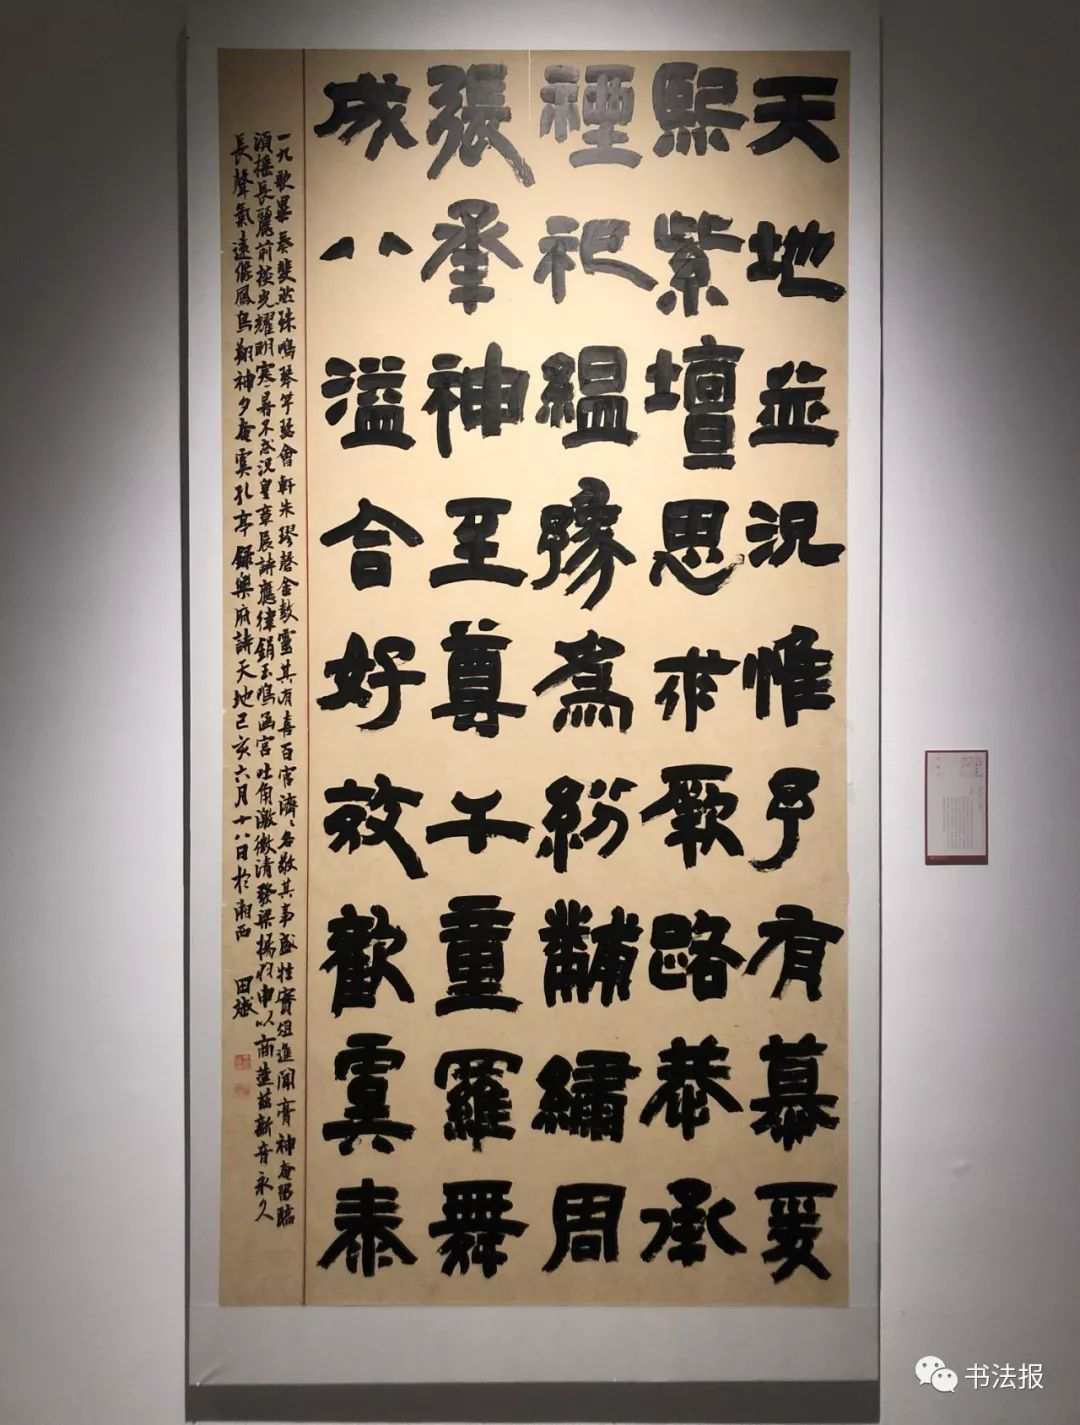 天地並況惟予有慕爰
熙紫壇思求厥路恭承
禋祀縕豫為紛黼繡周
張承神至尊千童羅舞
成八溢合好效歡虞泰
一九歌畢奏斐然殊鳴琴竽瑟會軒朱璆磬金鼓靈其有喜百官濟〻各敬其事盛牲實俎進聞膏神奄留臨
須搖長麗前掞光耀明寒暑不忒況皇章展詩應律鋗玉鳴函宮吐角激徵清發梁揚羽申以商造茲新音永久
長聲氣遠條鳳鳥翔神夕奄虞孔享 錄樂府詩天地己亥六月十八日於湘西 田
书法报